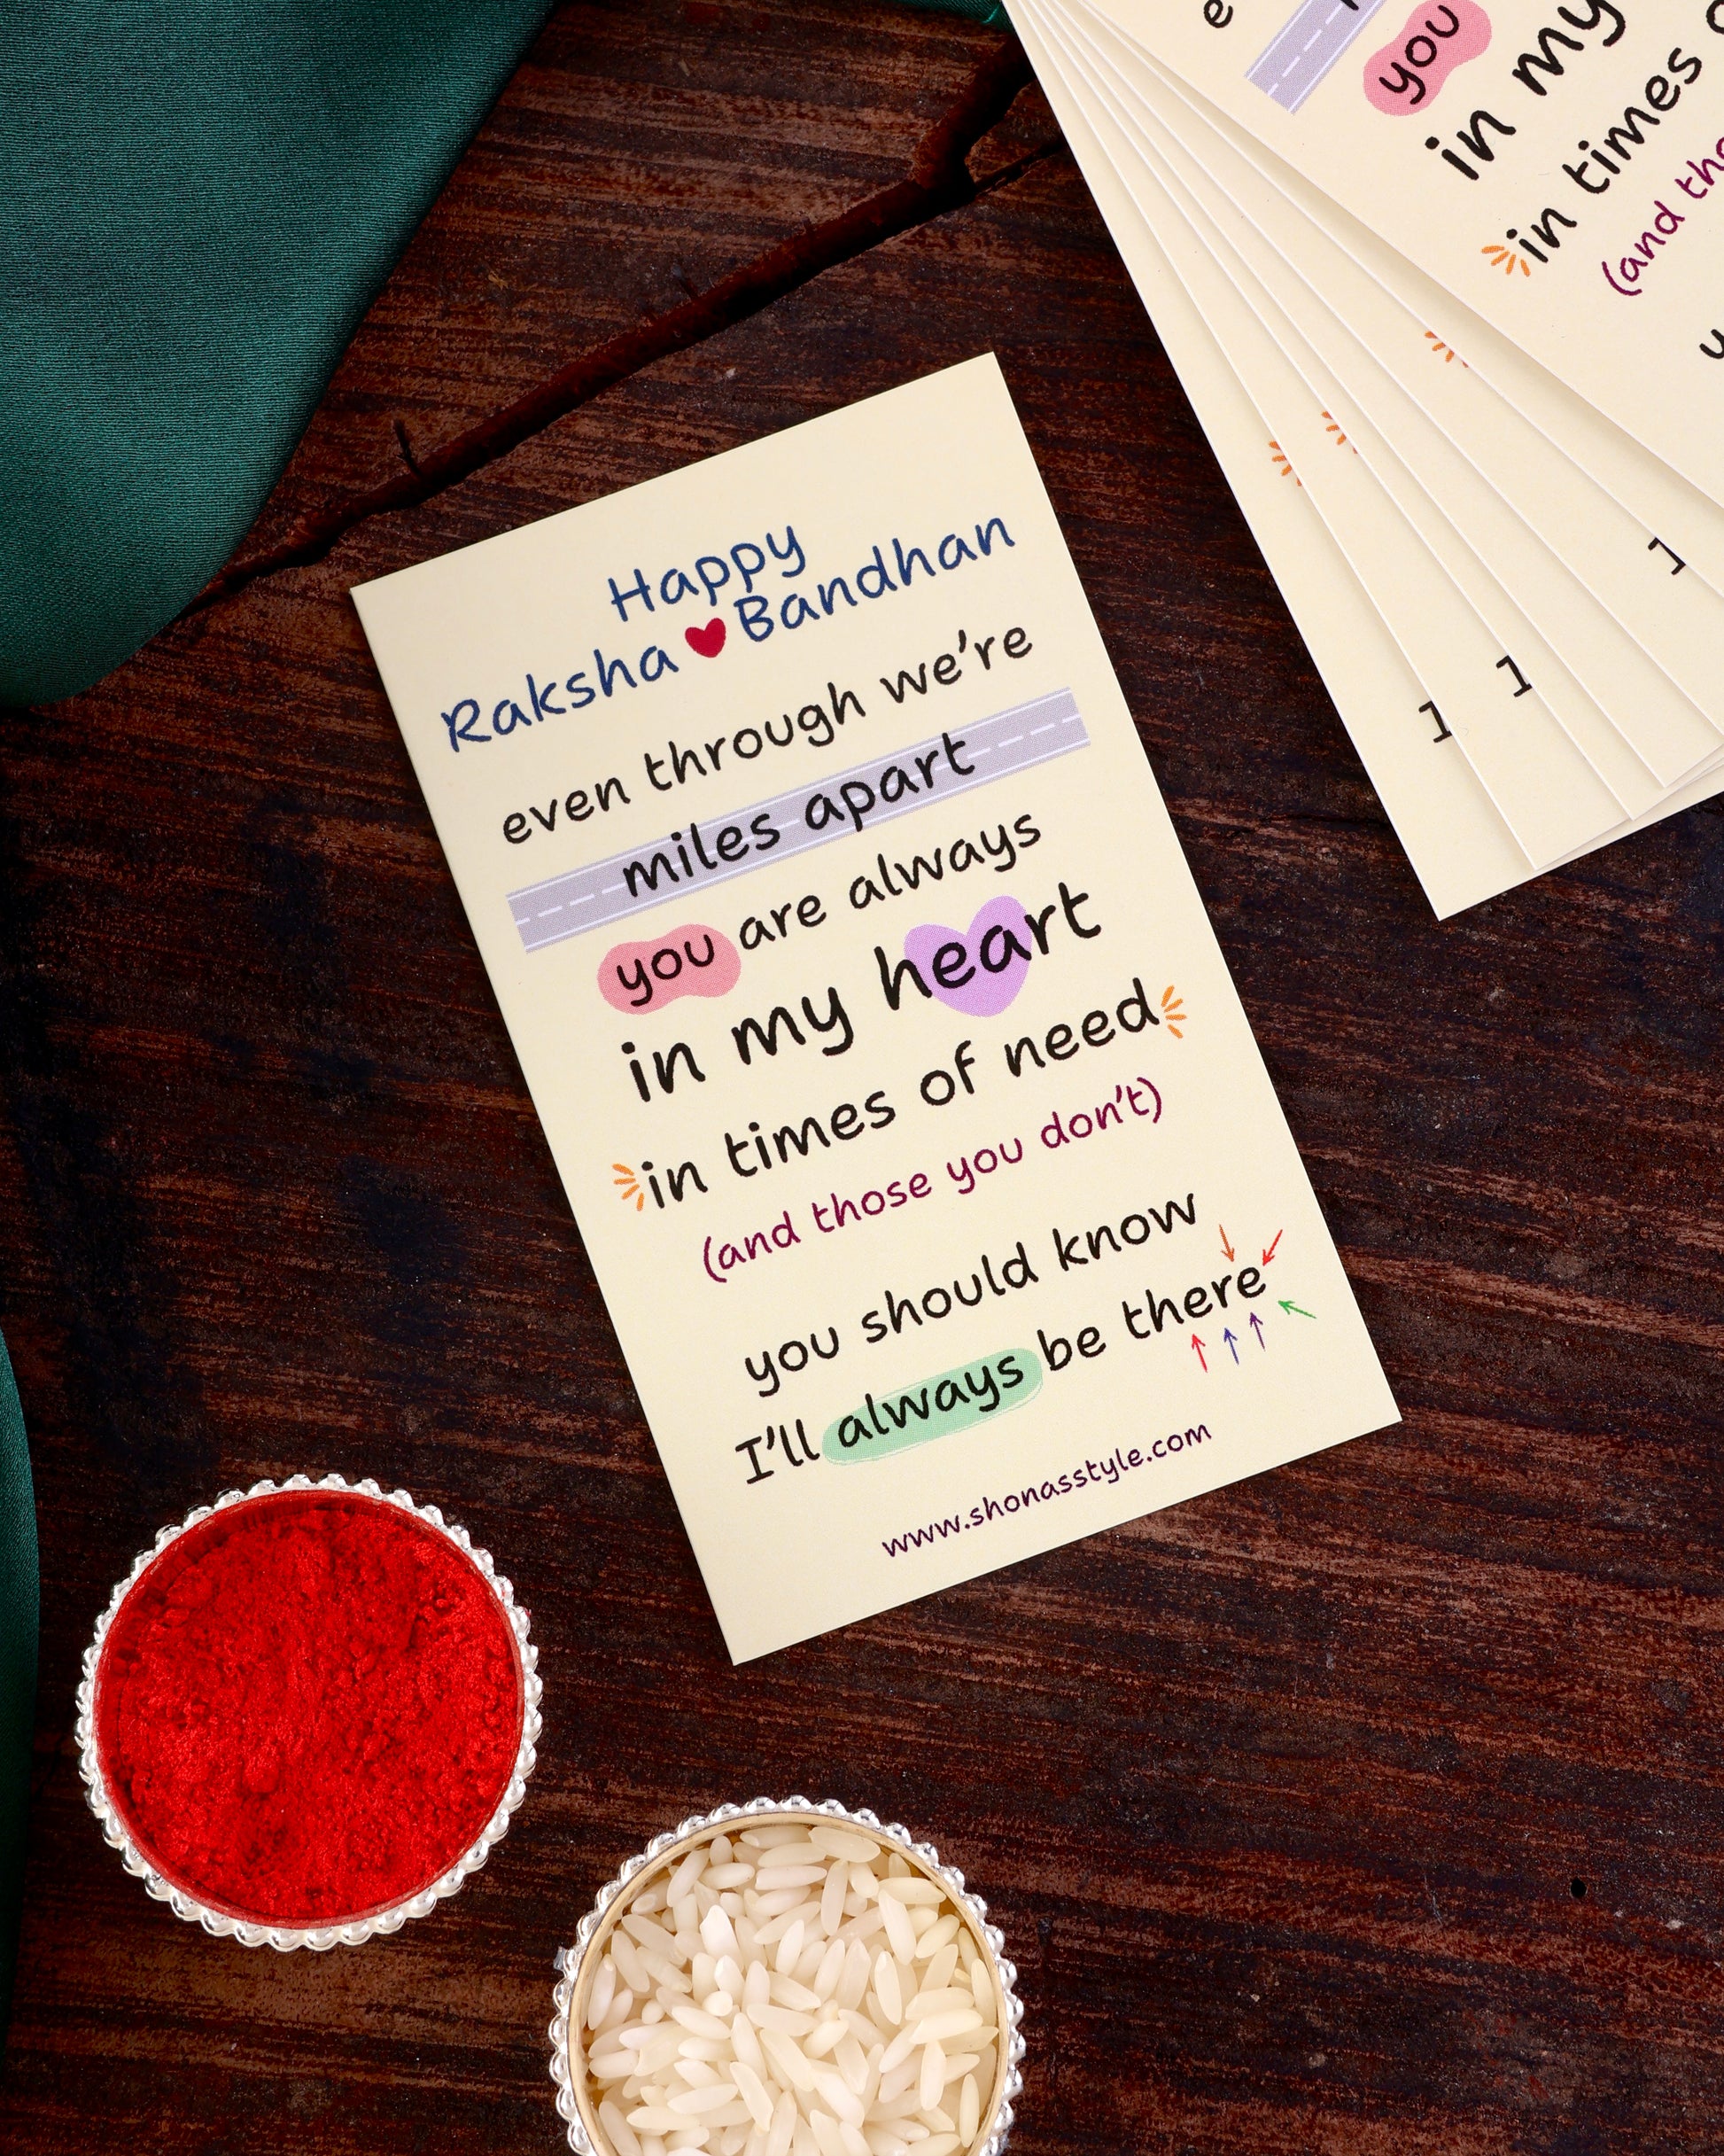 Happy
Raksha Bandhan
even through we're
miles apart
you are always
in my heart
in times of need
(and those you don't)
you should know
I'll always be there
www.shonasstyle.com
you
in my
in times
(and